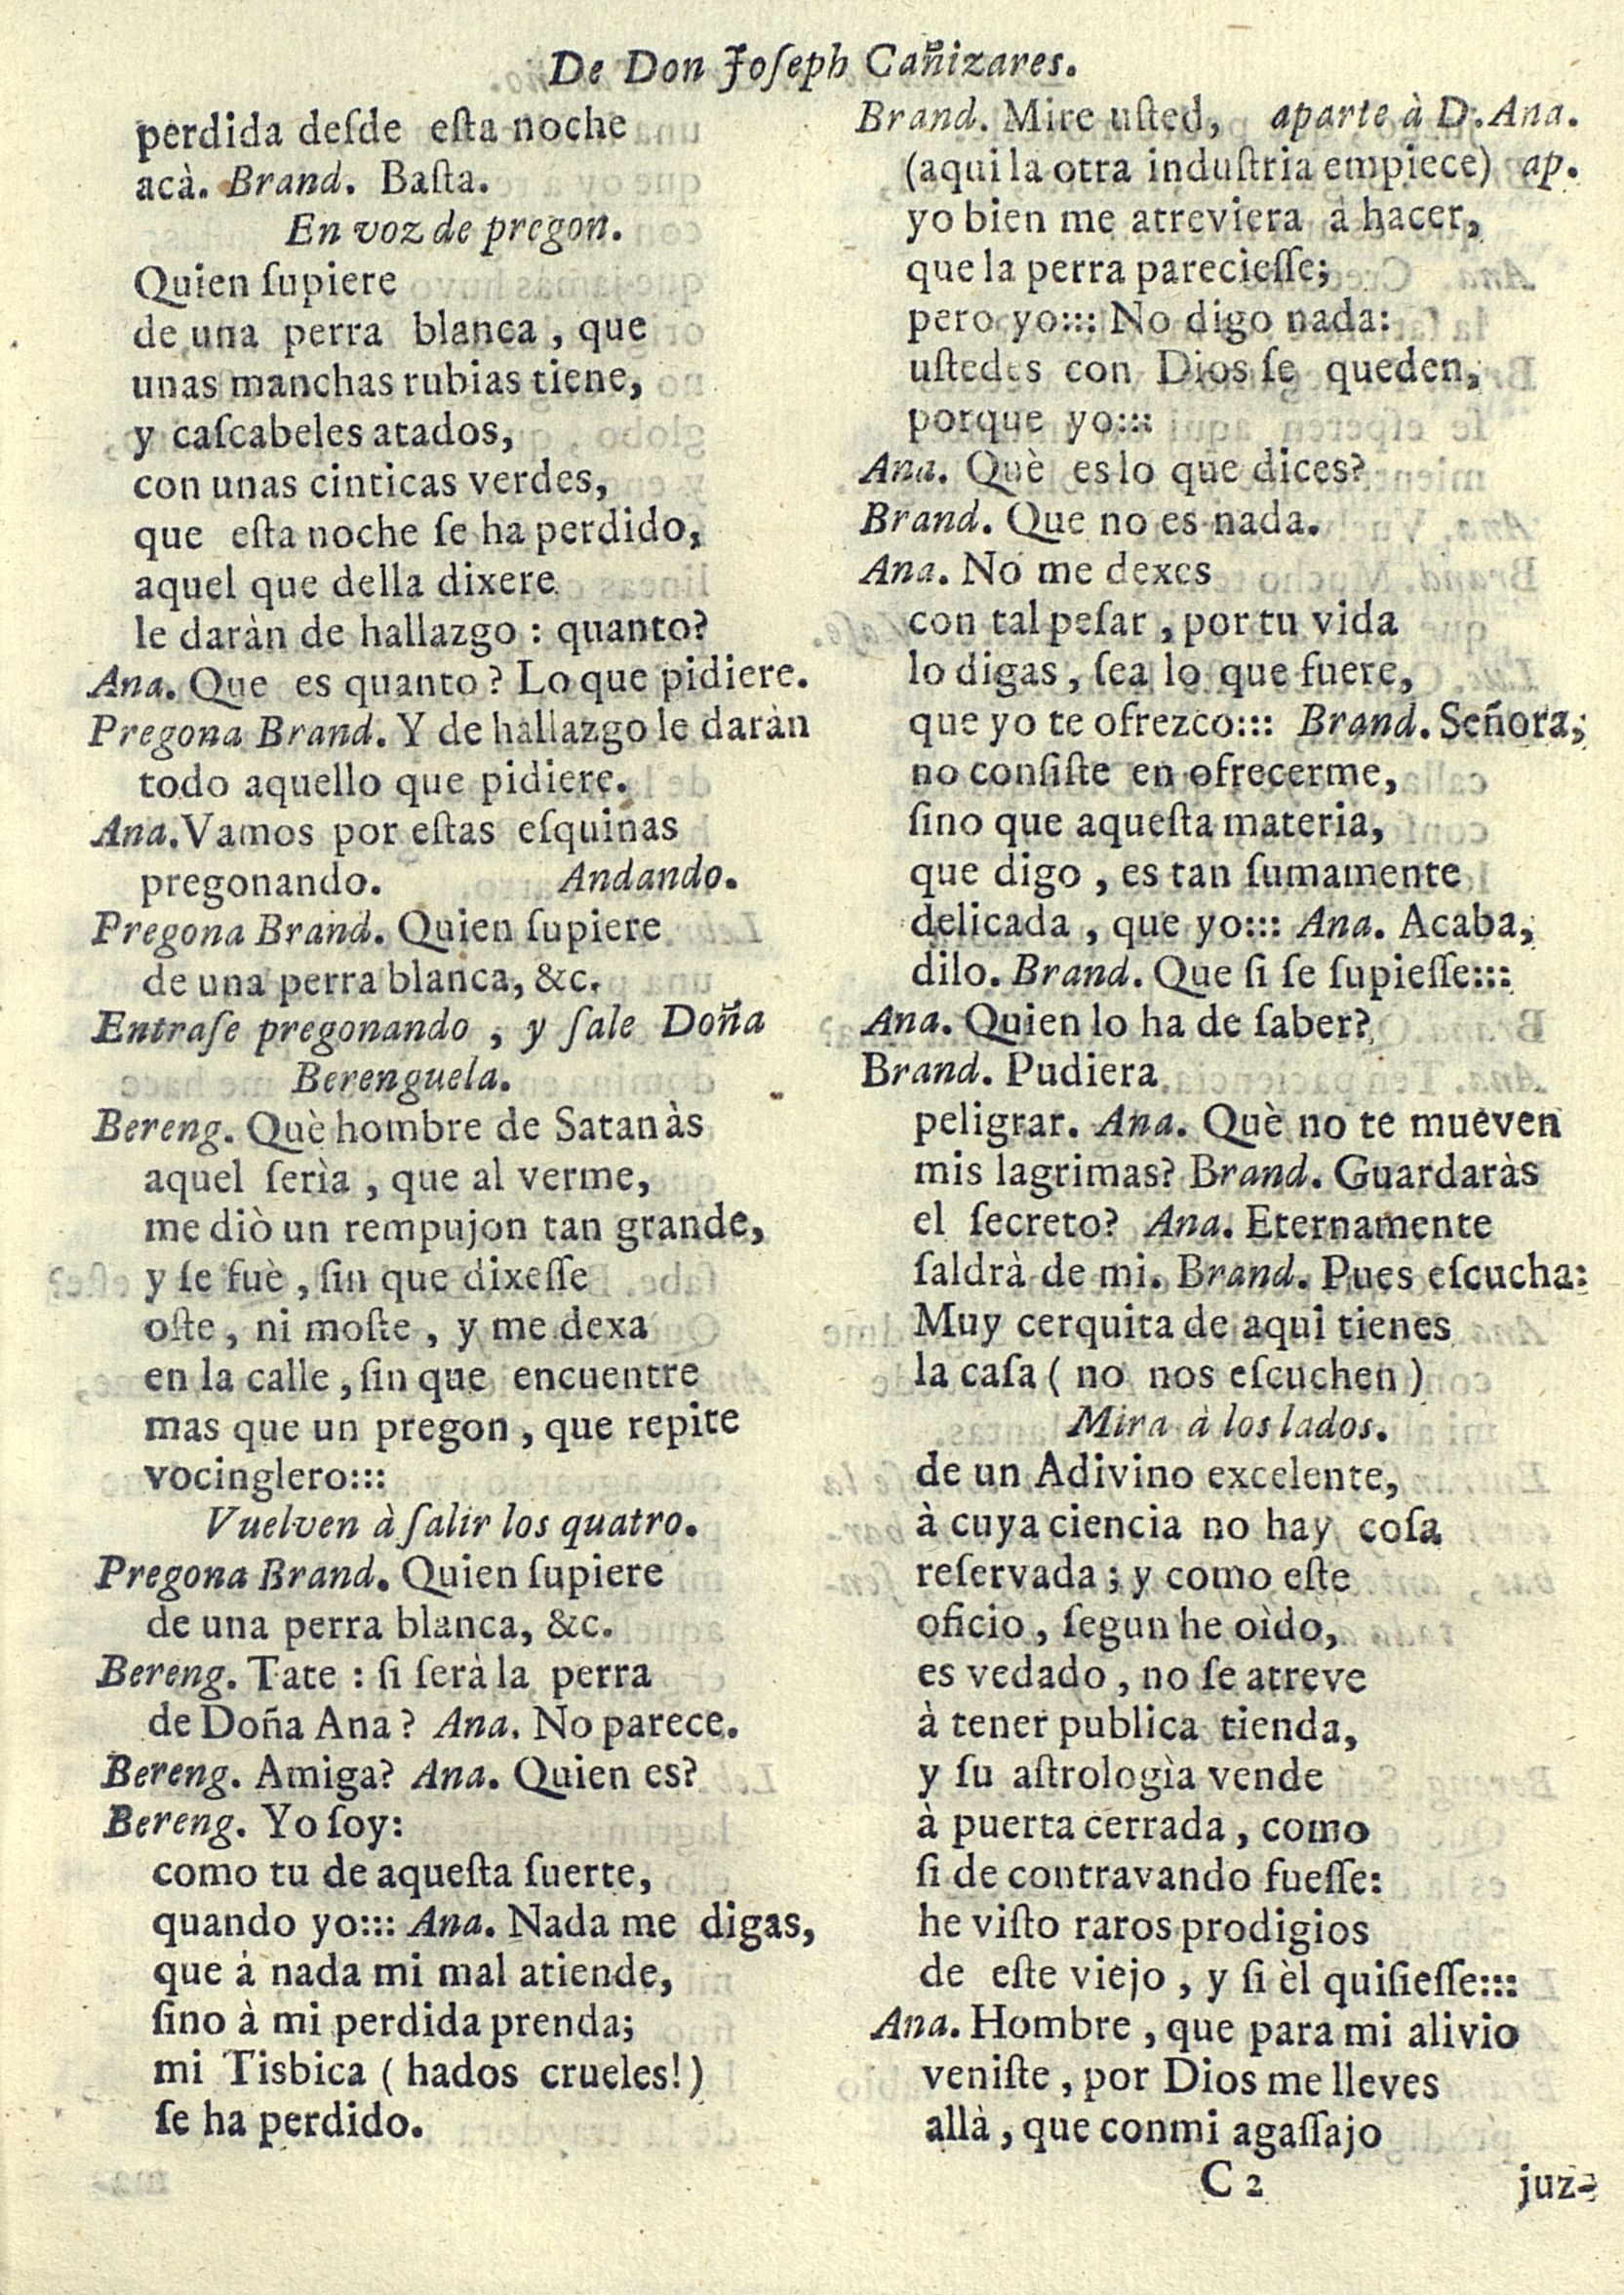 De Don Joſeph Cañizares.
perdida deſde eſta noche
acà. Brand. Baſta.
En voz de pregon.
Quien ſupiere
de una perra blanca, que
unas manchas rubias tiene,
y caſcabeles atados,
con unas cinticas verdes,
que eſta noche ſe ha perdido,
aquel que della dixere
le daràn de hallazgo : quanto?
Ana. Que es quanto? Lo que pidiere.
Pregona Brand. Y de hallazgo le daràn
todo aquello que pidiere.
Ana. Vamos por eſtas eſquinas
pregonando. Andando.
Pregona Brand. Quien ſupiere
de una perra blanca, &c.
Entraſe pregonando, y ſale Doña
Berenguela.
Bereng. Què hombre de Satanàs
aquel ſerìa, que al verme,
me diò un rempujon tan grande,
y ſe fuè, ſin que dixeſſe
oſte, ni moſte, y me dexa
en la calle, ſin que encuentre
mas que un pregon, que repite
vocinglero:::
Vuelven à ſalir los quatro.
Pregona Brand. Quien ſupiere
de una perra blanca, &c.
Bereng. Tate : ſi ſerà la perra
de Doña Ana? Ana. No parece.
Bereng. Amiga? Ana. Quien es?
Bereng. Yo ſoy:
como tu de aqueſta ſuerte,
quando yo::: Ana. Nada me digas,
que à nada mi mal atiende,
ſino à mi perdida prenda;
mi Tisbica (hados crueles!)
ſe ha perdido.
Brand. Mire uſted, aparte à D. Ana.
(aqui la otra induſtria empiece) ap.
yo bien me atreviera à hacer,
que la perra parecieſſe;
pero yo::: No digo nada:
uſtedes con Dios ſe queden,
porque yo:::
Ana. Què es lo que dices?
Brand. Que no es nada.
Ana. No me dexes
con tal peſar, por tu vida
lo digas, ſea lo que fuere,
que yo te ofrezco::: Brand. Señora,
no conſiſte en ofrecerme,
ſino que aqueſta materia,
que digo, es tan ſumamente
delicada, que yo::: Ana. Acaba,
dilo. Brand. Que ſi ſe ſupieſſe:::
Ana. Quien lo ha de ſaber?
Brand. Pudiera
peligrar. Ana. Què no te mueven
mis lagrimas? Brand. Guardaràs
el ſecreto? Ana. Eternamente
ſaldrà de mi. Brand. Pues eſcucha:
Muy cerquita de aqui tienes
la caſa (no nos eſcuchen)
Mira à los lados.
de un Adivino excelente,
à cuya ciencia no hay coſa
reſervada; y como eſte
oficio, ſegun he oìdo,
es vedado, no ſe atreve
à tener publica tienda,
y ſu aſtrologìa vende
à puerta cerrada, como
ſi de contravando fueſſe:
he viſto raros prodigios
de eſte viejo, y ſi èl quiſieſſe:::
Ana. Hombre, que para mi alivio
veniſte, por Dios me lleves
allà, que conmi agaſſajo
C 2 juz-